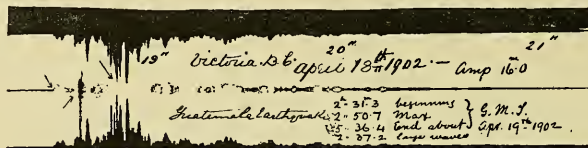 19ʰ 20ʰ 21ʰ
Victoria B.C. April 18th 1902 — Amp 16.0
Guatemala Earthquake
2-31.3 beginning
2-50.7 Max
5-36.4 End about
2-37.2 large waves
G.M.T.
Apr. 19th 1902.